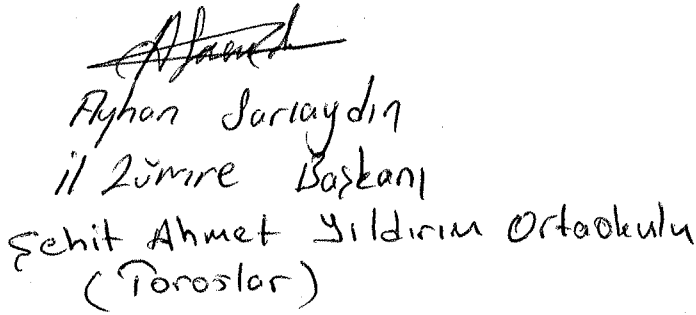 Ayhan Sarıaydın
il Zümre Başkanı
Şehit Ahmet Yıldırım Ortaokulu
(Toroslar)